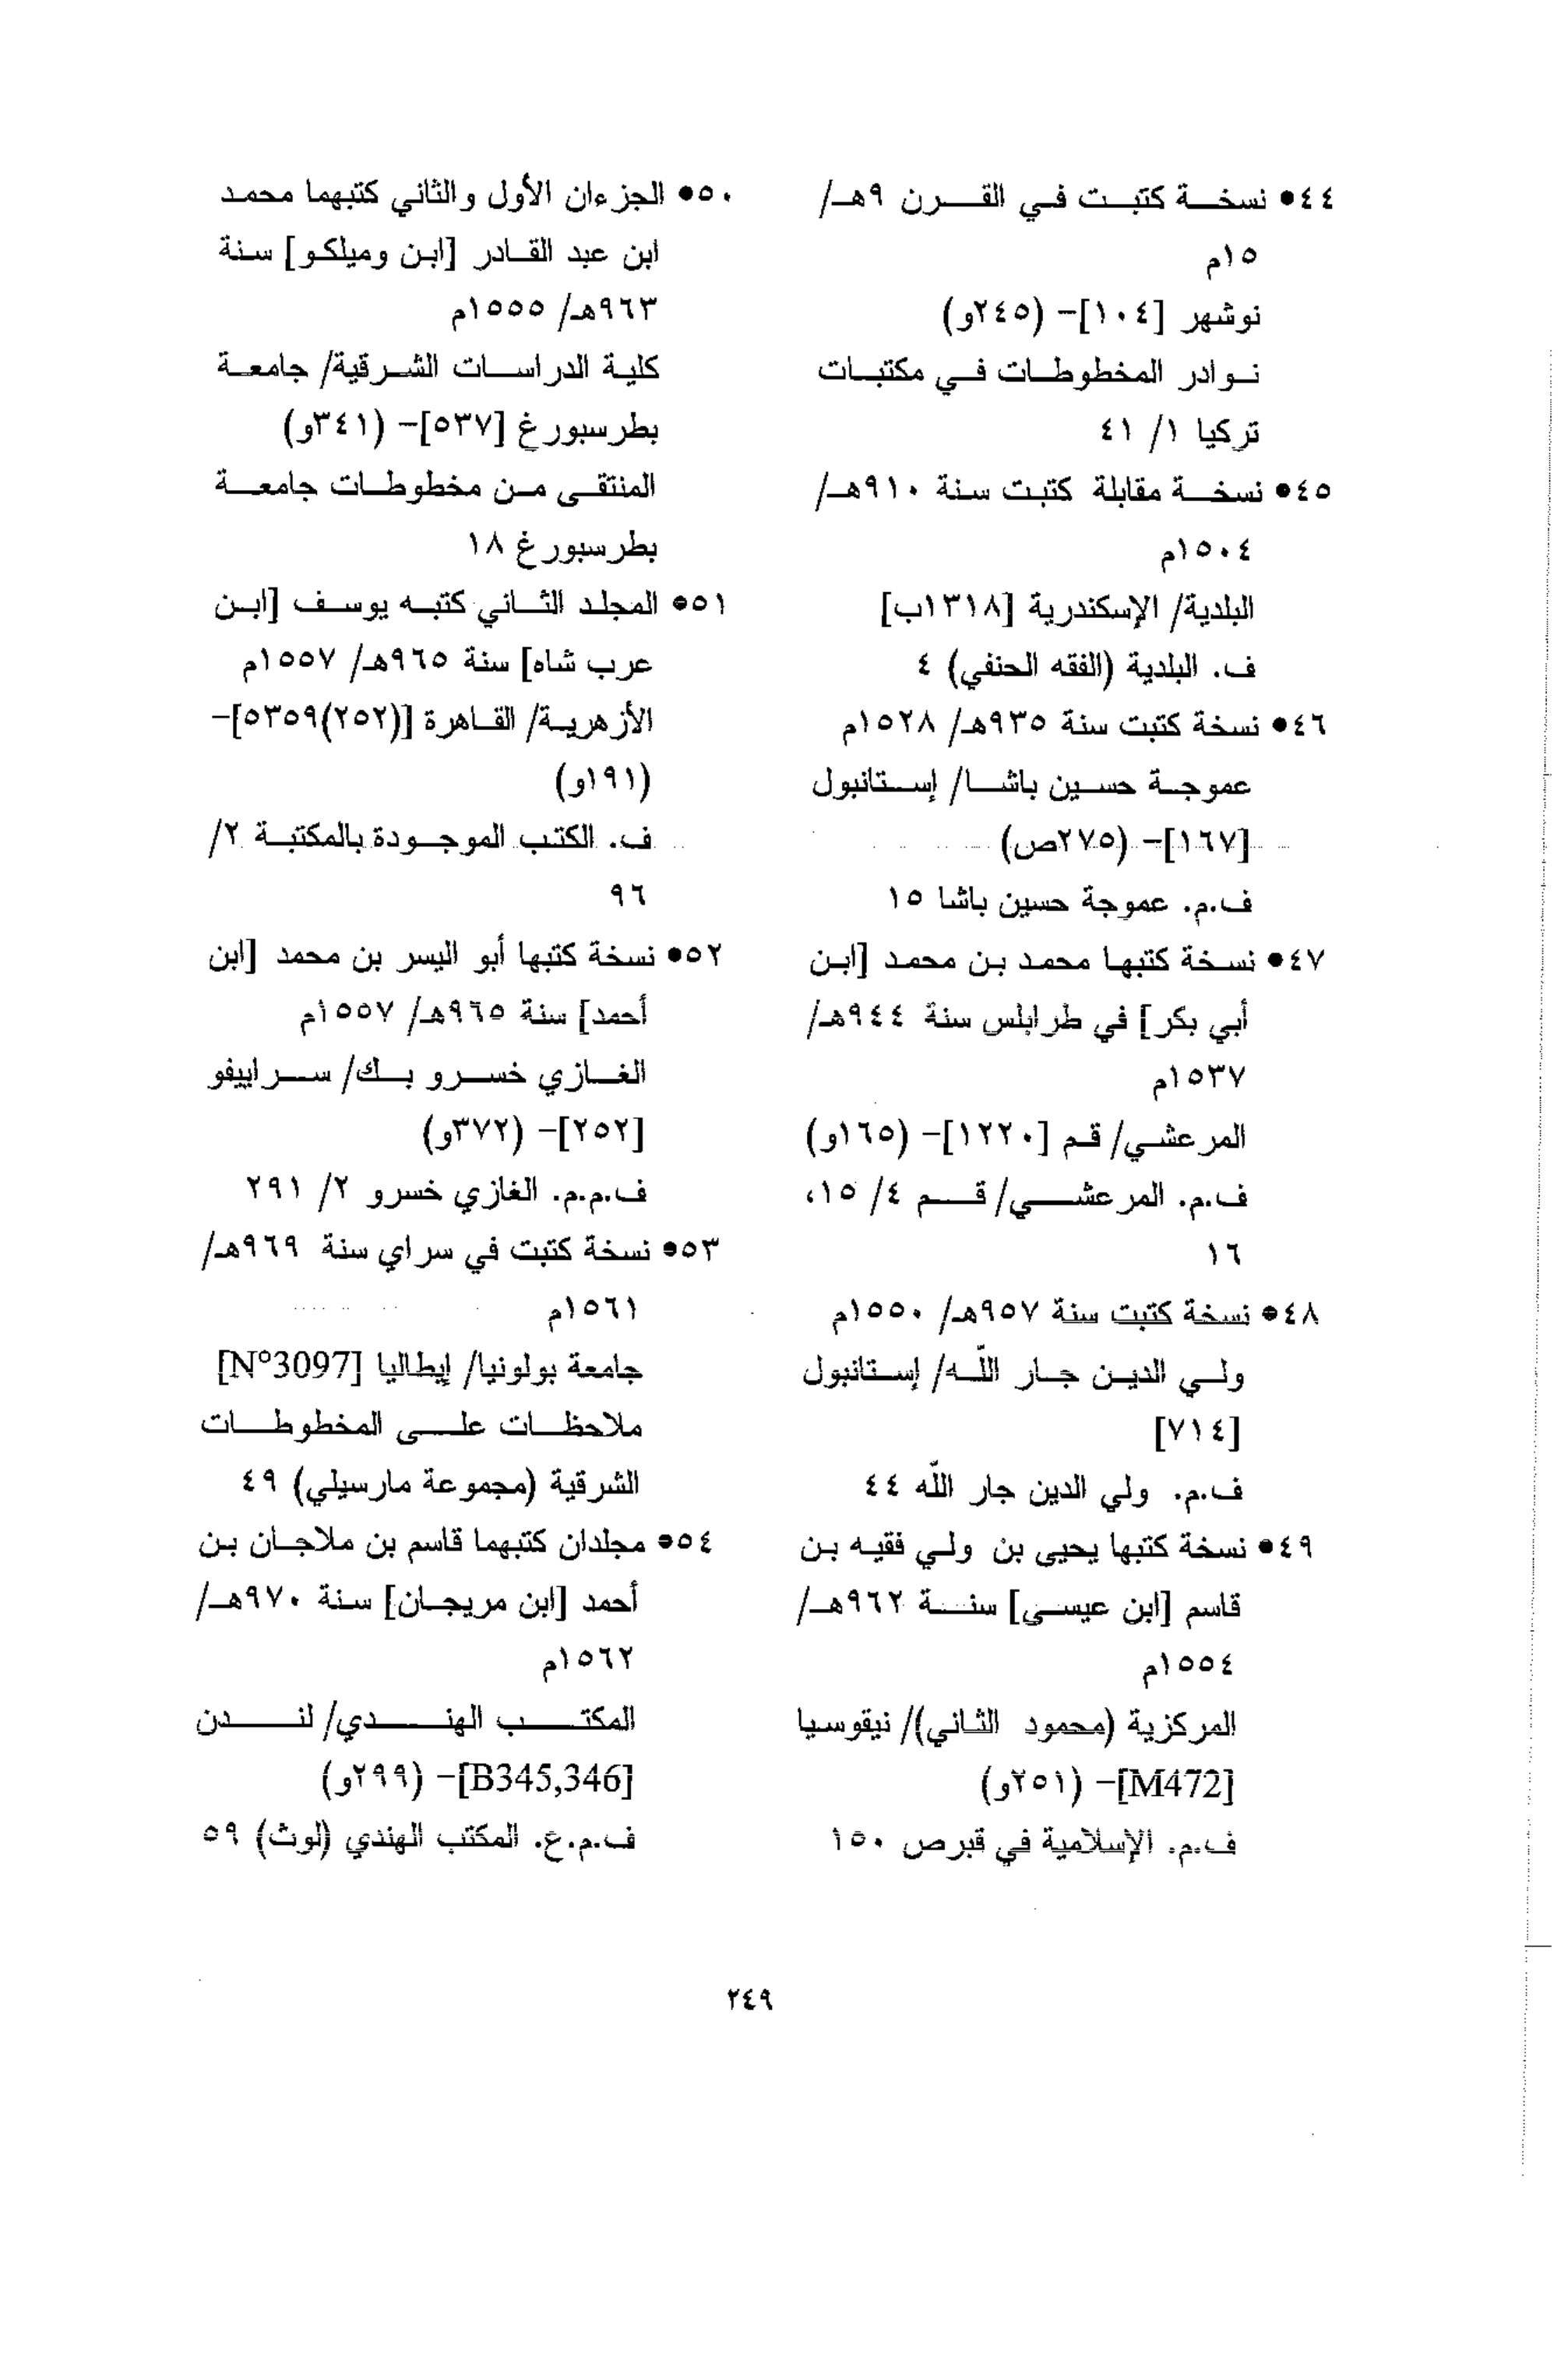 ٤٤• نسخة كتبت في القرن ٩هـ/
١٥م
نوشهر [١٠٤]- (٢٤٥و)
نوادر المخطوطات في مكتبات
تركيا ١/ ٤١
٤٥• نسخة مقابلة كتبت سنة ٩١٠هـ/
١٥٠٤م
البلدية/ الإسكندرية [١٣١٨ب]
ف. البلدية (الفقه الحنفي) ٤
٤٦• نسخة كتبت سنة ٩٣٥هـ/ ١٥٢٨م
عموجة حسين باشا/ إستانبول
[١٦٧]- (٢٧٥ص)
ف.م. عموجة حسين باشا ١٥
٤٧• نسخة كتبها محمد بن محمد [ابن
أبي بكر] في طرابلس سنة ٩٤٤هـ/
١٥٣٧م
المرعشي/ قم [١٢٢٠]- (١٦٥و)
ف.م. المرعشي/ قم ٤/ ١٥،
١٦
٤٨• نسخة كتبت سنة ٩٥٧هـ/ ١٥٥٠م
ولي الدين جار اللّه/ إستانبول
[٧١٤]
ف.م. ولي الدين جار اللّه ٤٤
٤٩• نسخة كتبها يحيى بن ولي فقيه بن
قاسم [ابن عيسى] سنة ٩٦٢هـ/
١٥٥٤م
المركزية (محمود الثاني)/ نيقوسيا
[M472]- (٢٥١و)
ف.م. الإسلامية في قبرص ١٥٠
٥٠• الجزءان الأول والثاني كتبهما محمد
ابن عبد القادر [ابن وميلكو] سنة
٩٦٣هـ/ ١٥٥٥م
كلية الدراسات الشرقية/ جامعة
بطرسبورغ [٥٣٧]- (٣٤١و)
المنتقى من مخطوطات جامعة
بطرسبورغ ١٨
٥١• المجلد الثاني كتبه يوسف [ابن
عرب شاه] سنة ٩٦٥هـ/ ١٥٥٧م
الأزهرية/ القاهرة [(٢٥٢)٥٣٥٩]-
(١٩١و)
ف. الكتب الموجودة بالمكتبة ٢/
٩٦
٥٢• نسخة كتبها أبو اليسر بن محمد [ابن
أحمد] سنة ٩٦٥هـ/ ١٥٥٧م
الغازي خسرو بك/ سراييفو
[٢٥٢]- (٣٧٢و)
ف.م.م. الغازي خسرو ٢/ ٢٩١
٥٣• نسخة كتبت في سراي سنة ٩٦٩هـ/
١٥٦١م
جامعة بولونيا/ إيطاليا [N°3097]
ملاحظات على المخطوطات
الشرقية (مجموعة مارسيلي) ٤٩
٥٤• مجلدان كتبهما قاسم بن ملاجان بن
أحمد [ابن مريجان] سنة ٩٧٠هـ/
١٥٦٢م
المكتب الهندي/ لندن
[B345,346]- (٢٩٩و)
ف.م.ع. المكتب الهندي (لوث) ٥٩
٢٤٩